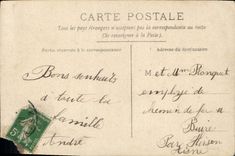 CARTE POSTALE
Tous les pays étrangers n'acceptent pas la correspondance au recto
(Se renseigner à la Poste).
Partie réservée à la correspondance
Adresse du destinataire
Bons souhaits
à toute la
famille
André
M et Mme
employé de
chemin de fer à
Buire
Par Hirson
Aisne